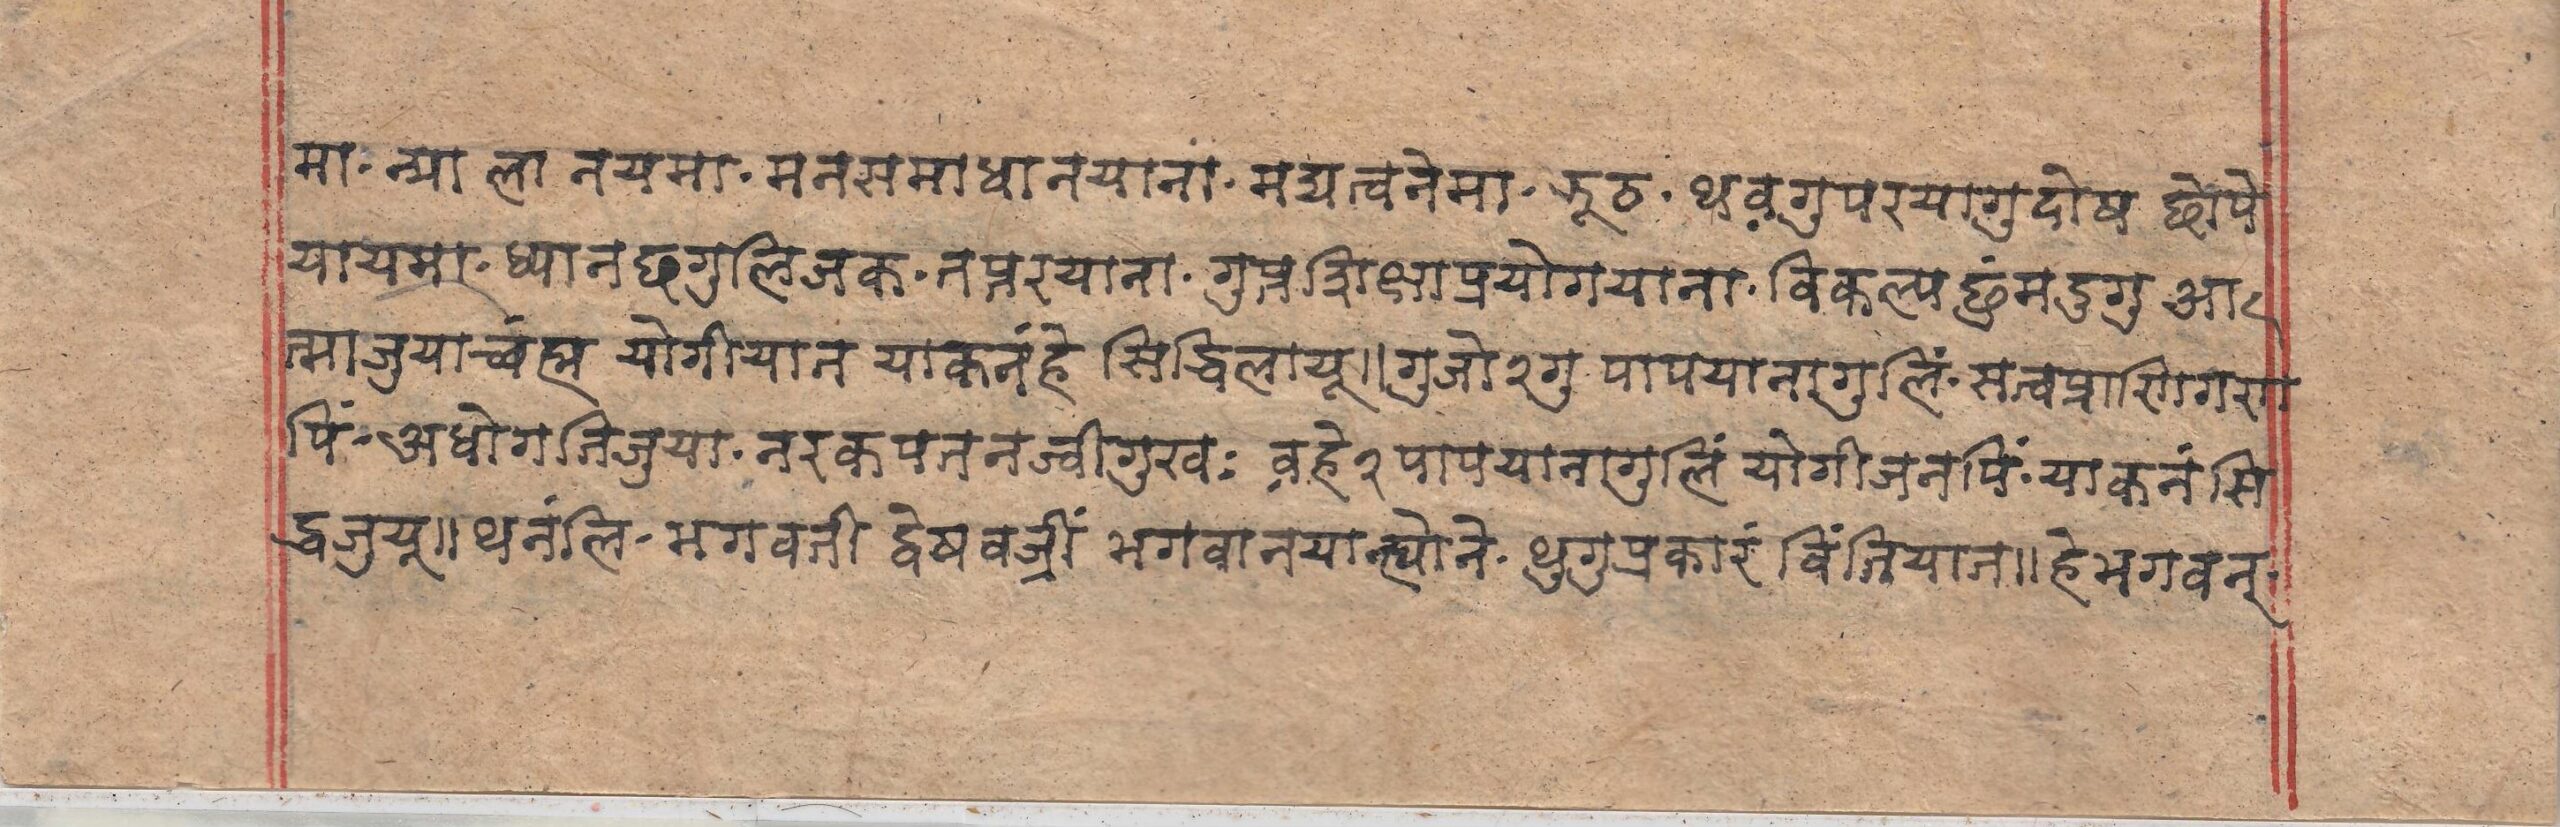 मा· न्या ला नयमा· मनसमाधानयाना· मद्यत्वनेमा· झूठ· थव़गुपरयागुदोष छोपे
यायमा· ध्यानछगुलिजक· तप्तरयाना· गुप्तशिक्षाप्रयोगयाना· विकल्पछुंमदुगु आ
त्माजुयाच्वंह्म योगीयान याकनंहे सिद्धिलायू॥गुजो२गु पापयानागुलिं· सत्वप्राणिगण
पिं· अधोगतिजुया· नरकपतनज्वीगुखः व़हे२पापयानागुलिं योगीजनपिं· याकनंसि
द्धजुयू॥थनंलि· भगवती द्वेषवज्रीं भगवानयान्ह्योने· थुगुप्रकारं विंतियान॥हेभगवन्·